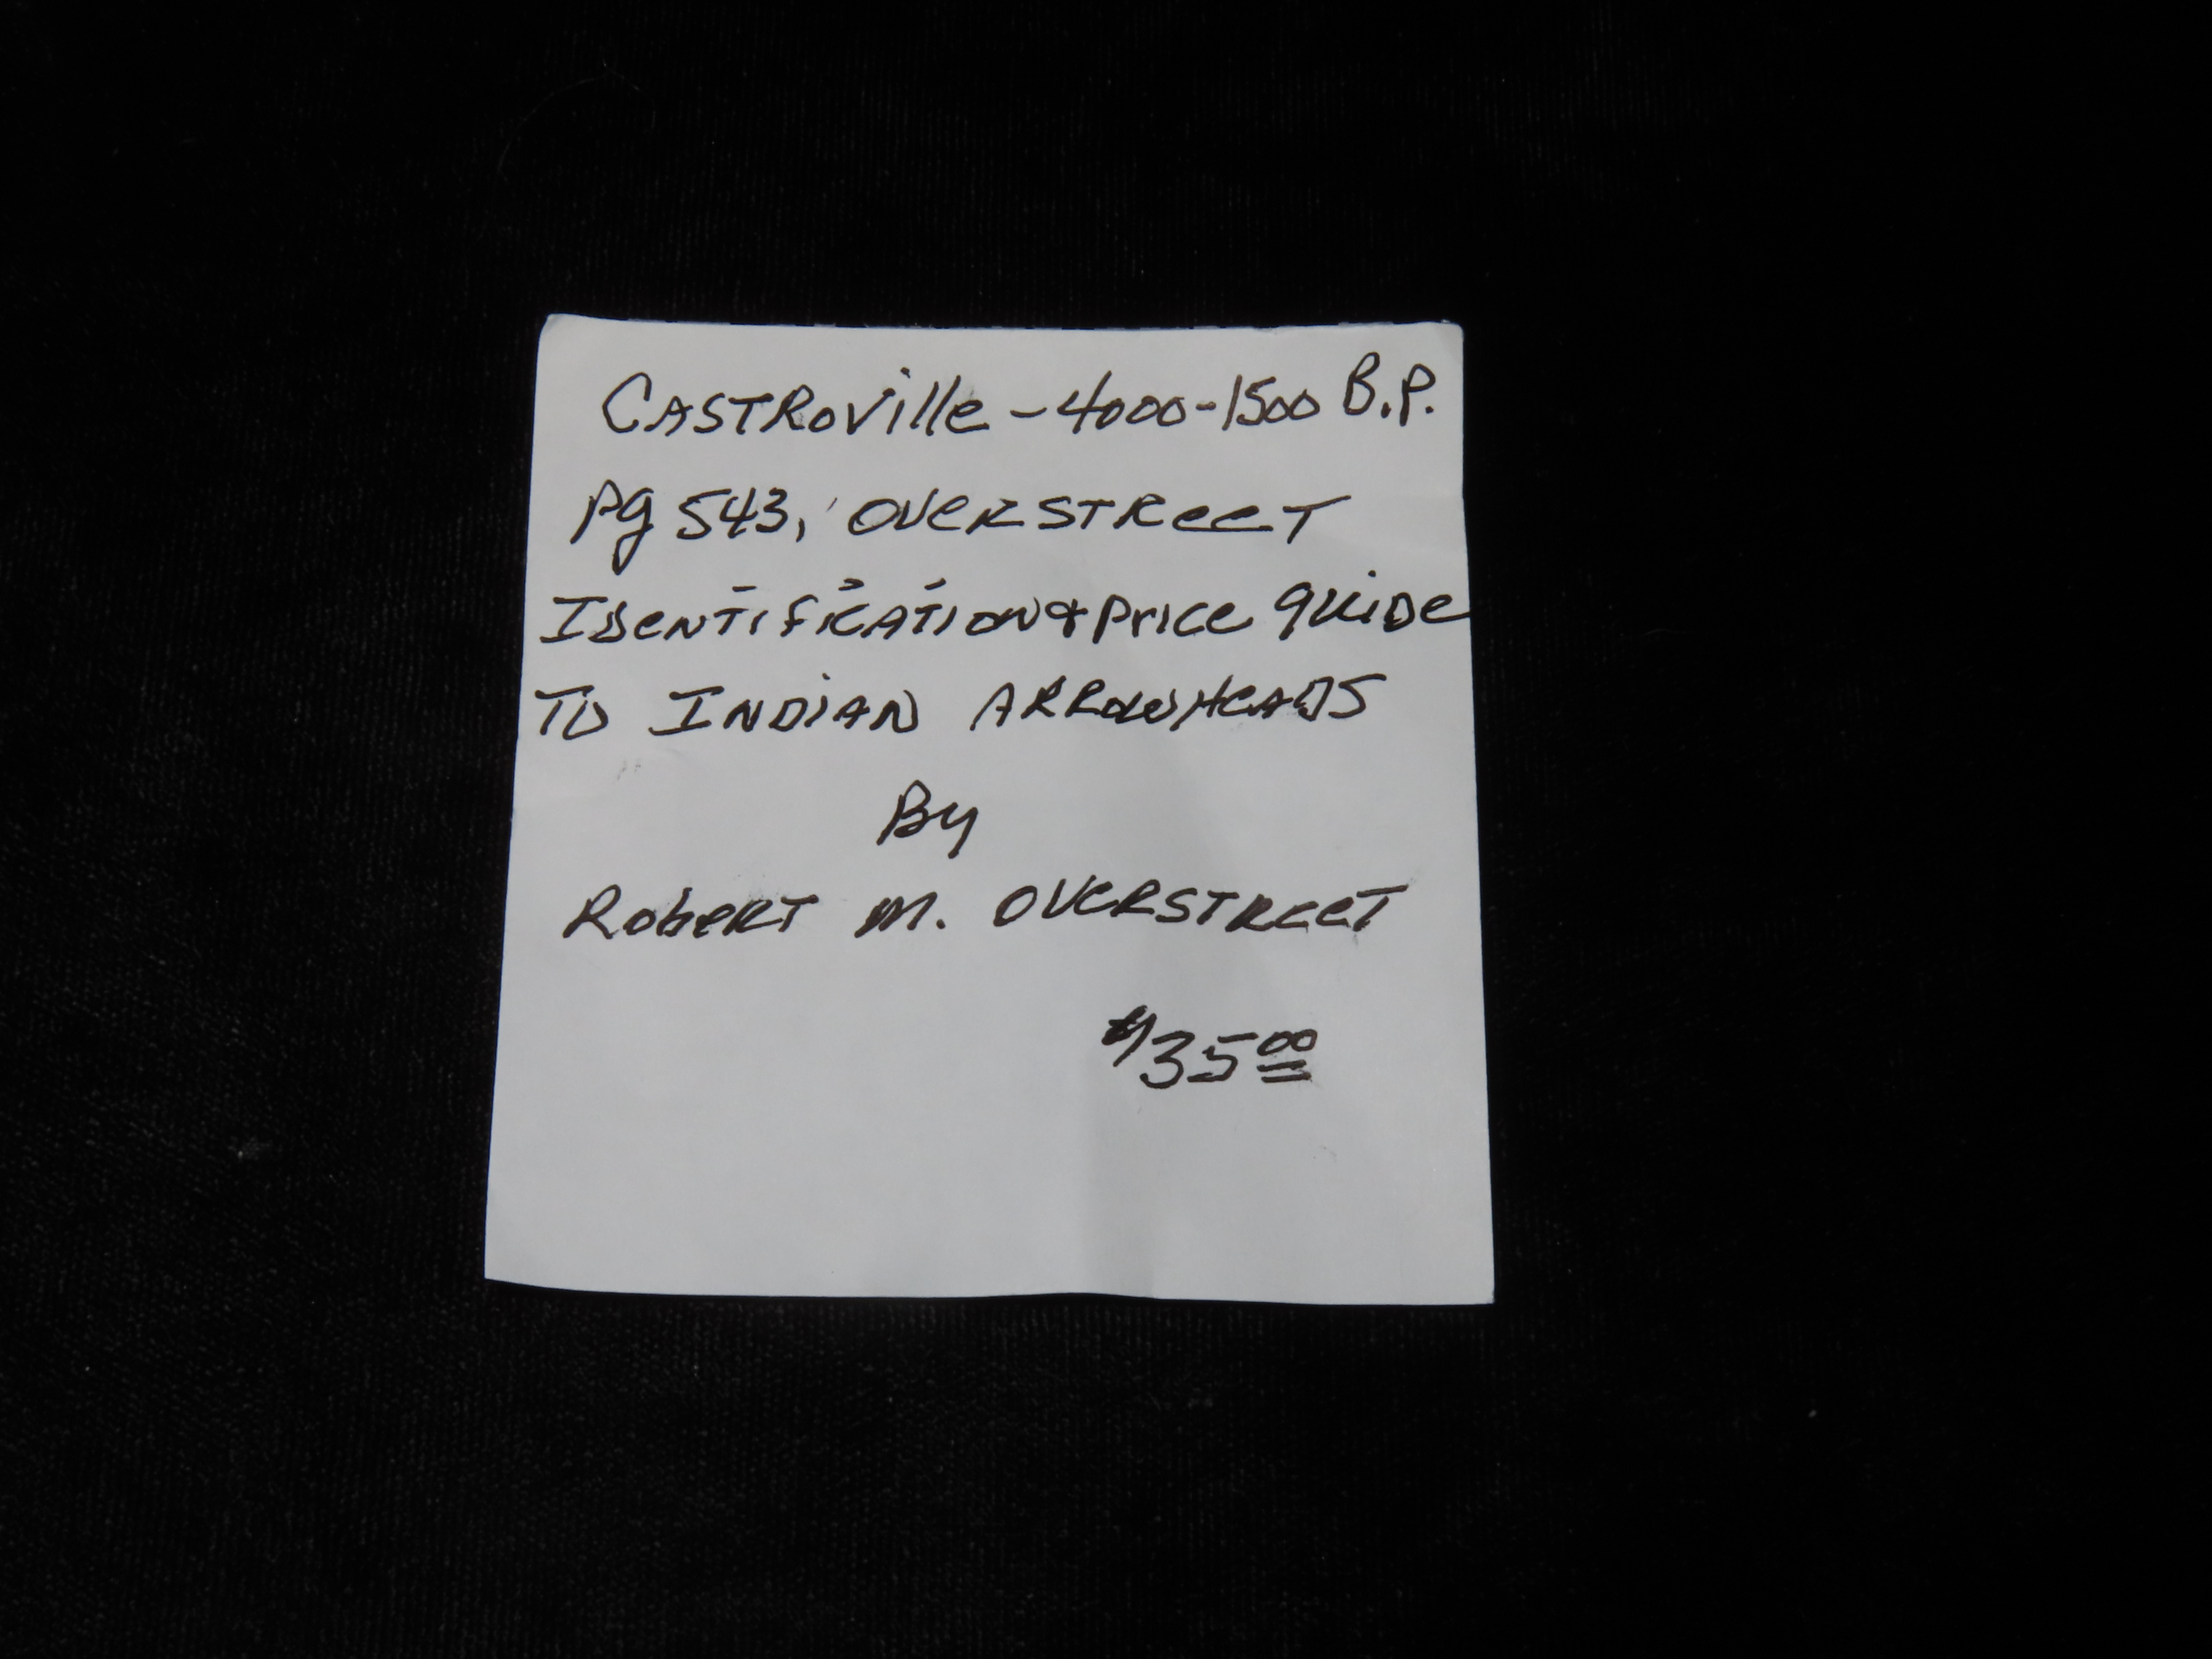 CASTROVille - 4000-1500 B.P.
Pg 543, OVERSTREET
IDENTIFICATION & Price guide
TO INDIAN ARROWHEADS
By
RobeRT M. OVERSTREET
$35.00